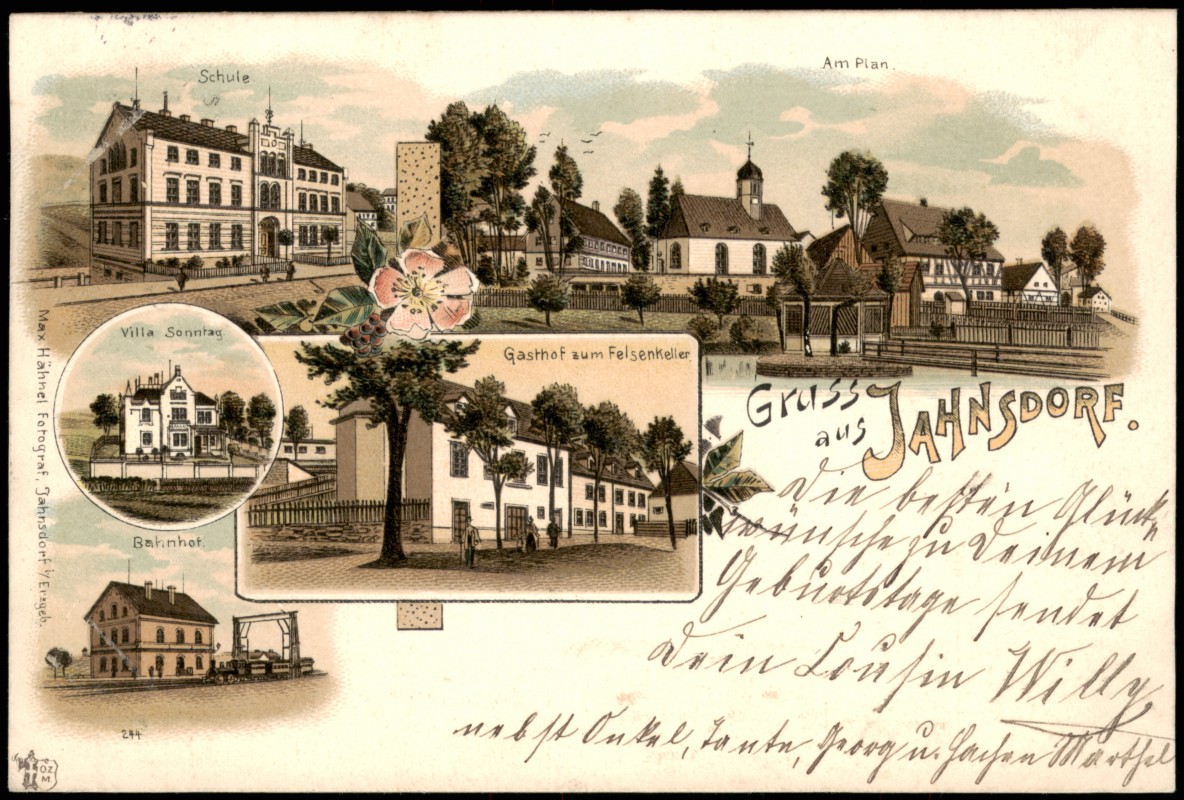 Schule
Am Plan.
Villa Sonntag
Gasthof zum Felsenkeller.
Gruss
aus JAHNSDORF.
Max Hähnel Fotograf, Jahnsdorf i/Erzgeb.
Bahnhof.
Die besten Glück-
wünsche zu Deinem
Geburtstage sendet
Dein Cousin Willy
nebst Onkel, Tante, Georg u.
244
OZ
M